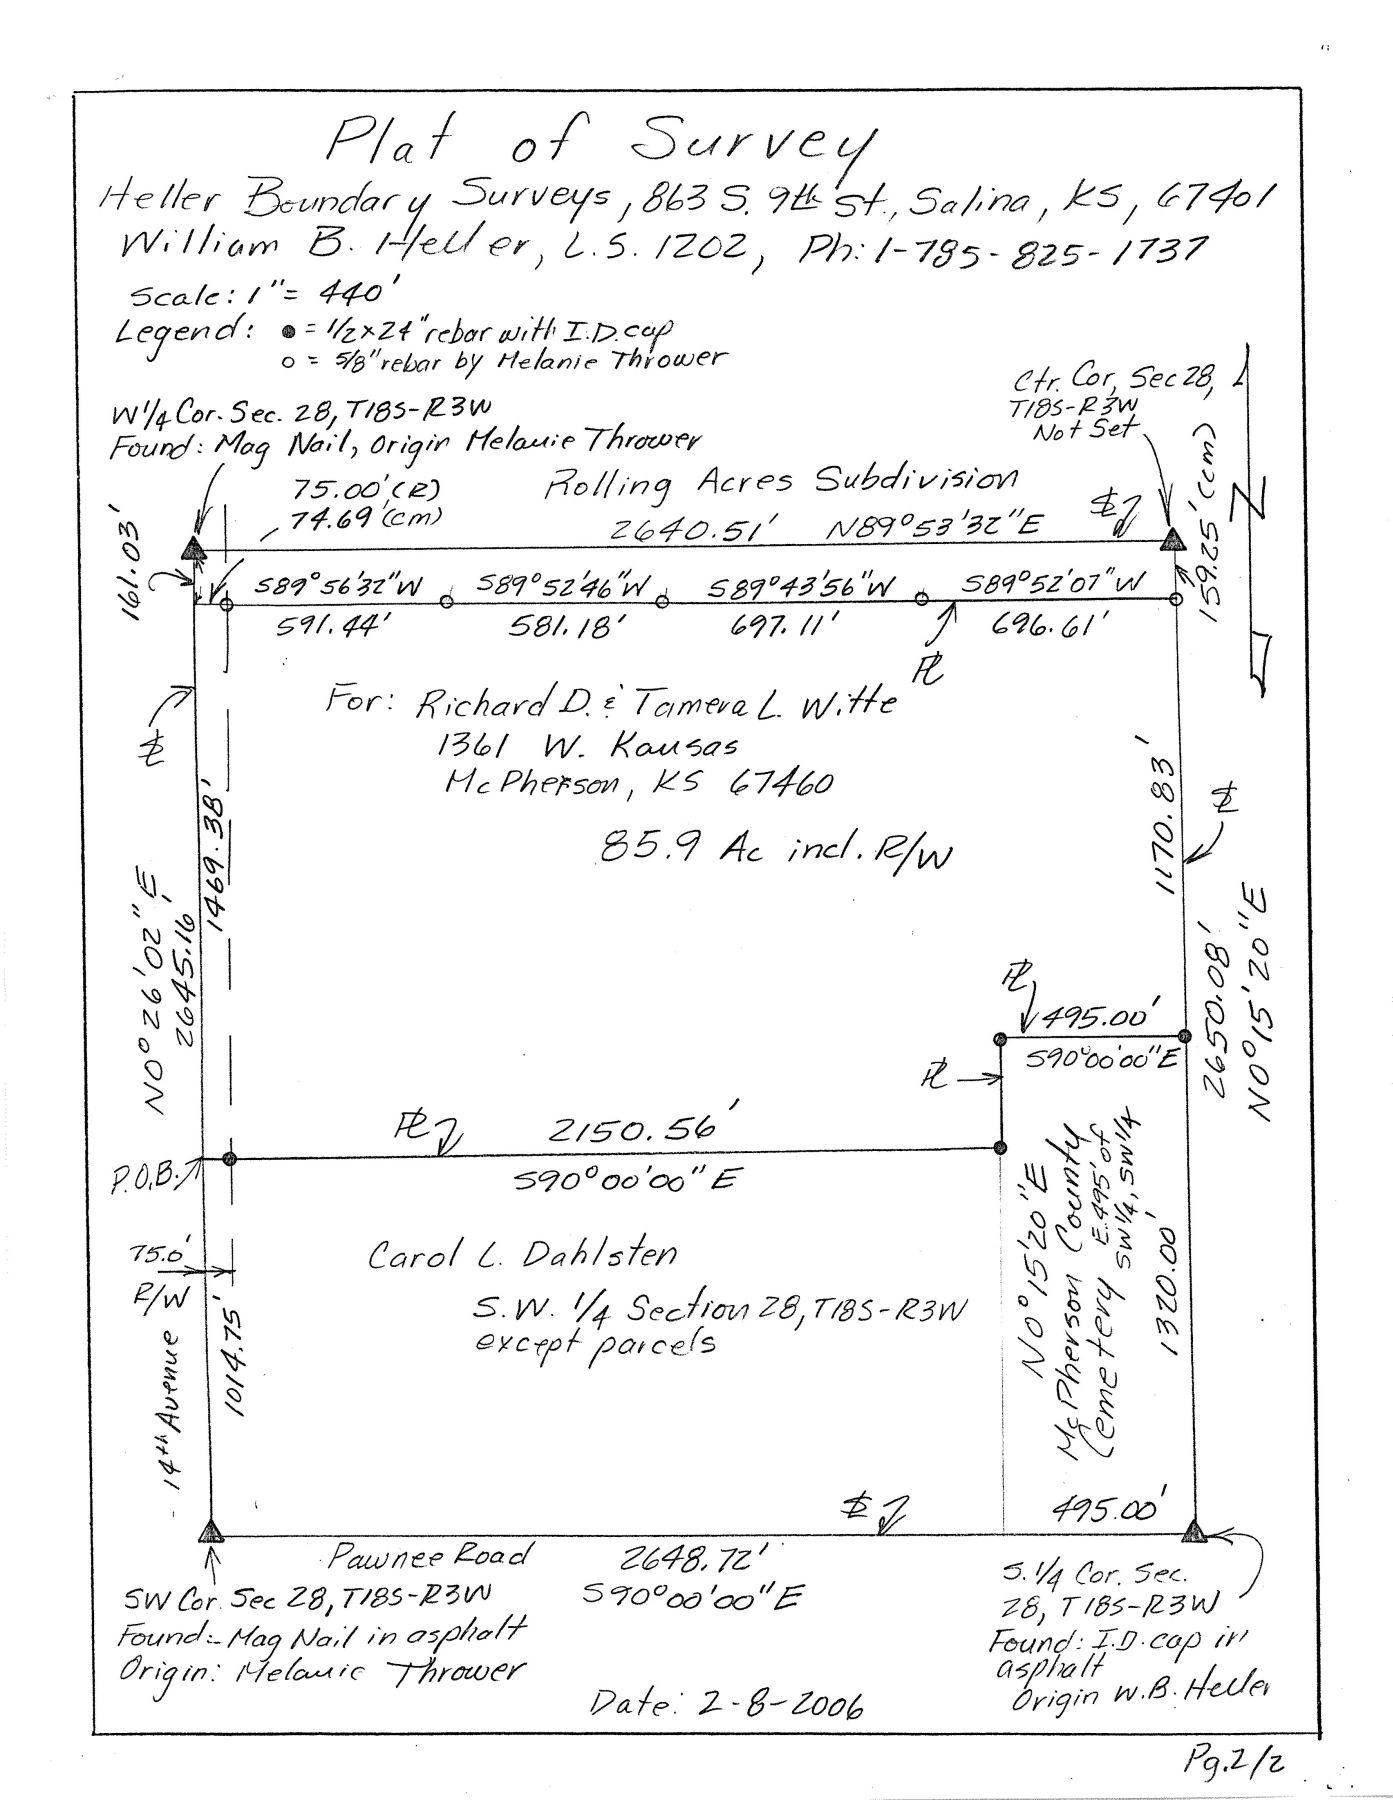 Plat of Survey
Heller Boundary Surveys, 863 S. 9th St., Salina, KS, 67401
William B. Heller, L.S. 1202, Ph: 1-785-825-1737
Scale: 1"= 440'
Legend: ● = 1/2x24" rebar with I.D. cap
○ = 5/8" rebar by Melanie Thrower
W1/4 Cor. Sec. 28, T18S-R3W
Found: Mag Nail, Origin Melanie Thrower
Ctr. Cor, Sec 28,
T18S-R3W
Not Set
75.00' (R)
74.69' (cm)
Rolling Acres Subdivision
2640.51' N89°53'32"E
161.03'
159.25' (ccm)
N
S89°56'32"W S89°52'46"W S89°43'56"W S89°52'07"W
591.44' 581.18' 697.11' 696.61'
PL
For: Richard D. & Tamera L. Witte
1361 W. Kansas
McPherson, KS 67460
85.9 Ac incl. R/W
1469.38'
N0°26'02"E
2645.16'
1170.83'
2650.08'
N0°15'20"E
PL
495.00'
S90°00'00"E
PL
PL
2150.56'
S90°00'00"E
P.O.B.
75.0'
R/W
14th Avenue
1014.75'
Carol L. Dahlsten
S.W. 1/4 Section 28, T18S-R3W
except parcels
N0°15'20"E
McPherson County
Cemetery E. 495' of
SW1/4, SW1/4
1320.00'
495.00'
Pawnee Road 2648.72'
S90°00'00"E
SW Cor. Sec 28, T18S-R3W
Found:- Mag Nail in asphalt
Origin: Melanie Thrower
S. 1/4 Cor. Sec.
28, T18S-R3W
Found: I.D. cap in
asphalt
Origin W.B. Heller
Date: 2-8-2006
Pg. 2/2